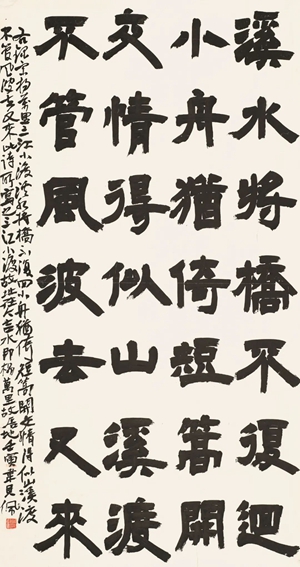 溪水將橋不復迴
小舟猶倚短篙開
交情得似山溪渡
不管風波去又來
右録宋楊萬里三江小渡溪水將橋不復回小舟猶倚短篙開交情得似山溪渡
不管風波去又來此诗所寫之三江小渡故址在今吉水即楊萬里故居地壬寅